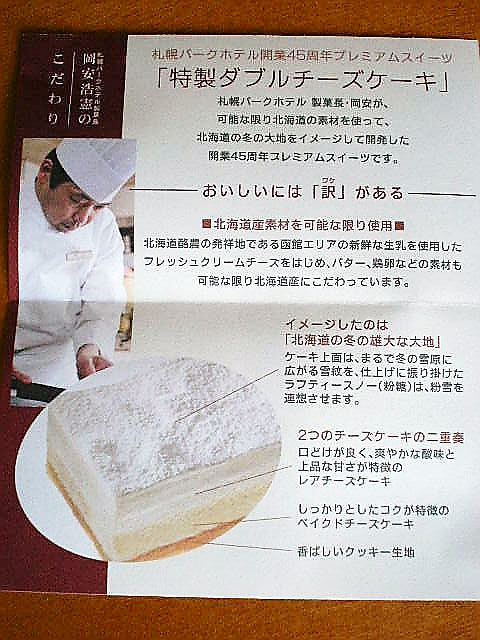 札幌パークホテル製菓長
岡安浩憲の
こだわり
札幌パークホテル開業45周年プレミアムスイーツ
「特製ダブルチーズケーキ」
札幌パークホテル 製菓長・岡安が、
可能な限り北海道の素材を使って、
北海道の冬の大地をイメージして開発した
開業45周年プレミアムスイーツです。
ワケ
おいしいには「訳」がある
■北海道産素材を可能な限り使用■
北海道酪農の発祥地である函館エリアの新鮮な生乳を使用した
フレッシュクリームチーズをはじめ、バター、鶏卵などの素材も
可能な限り北海道産にこだわっています。
イメージしたのは
「北海道の冬の雄大な大地」
ケーキ上面は、まるで冬の雪原に
広がる雪紋を、仕上げに振り掛けた
ラフティースノー(粉糖)は、粉雪を
連想させます。
2つのチーズケーキの二重奏
口どけが良く、爽やかな酸味と
上品な甘さが特徴の
レアチーズケーキ
しっかりとしたコクが特徴の
ベイクドチーズケーキ
香ばしいクッキー生地